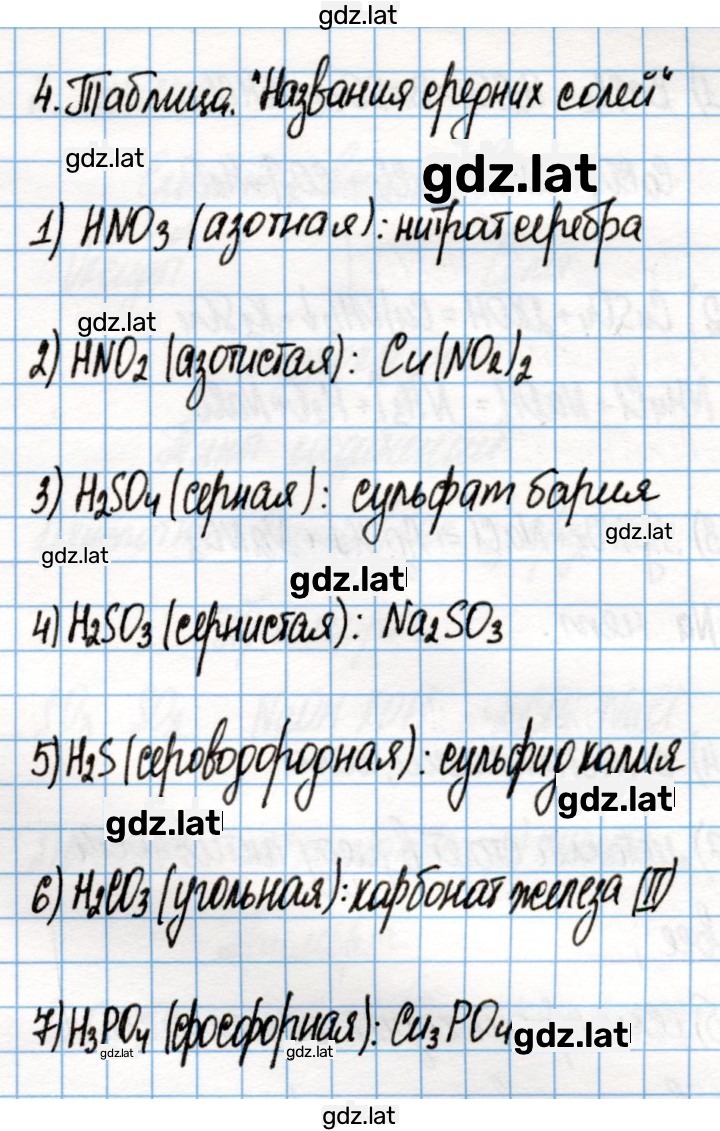 gdz.lat
4. Таблица. "Названия средних солей"
gdz.lat
gdz.lat
1) HNO3 (азотная): нитрат серебра
gdz.lat
2) HNO2 (азотистая): Cu(NO2)2
3) H2SO4 (серная): сульфат бария
gdz.lat
gdz.lat
gdz.lat
4) H2SO3 (сернистая): Na2SO3
5) H2S (сероводородная): сульфид калия
gdz.lat
gdz.lat
6) H2CO3 (угольная): карбонат железа (II)
7) H3PO4 (фосфорная): Cu3PO4
gdz.lat
gdz.lat
gdz.lat
gdz.lat